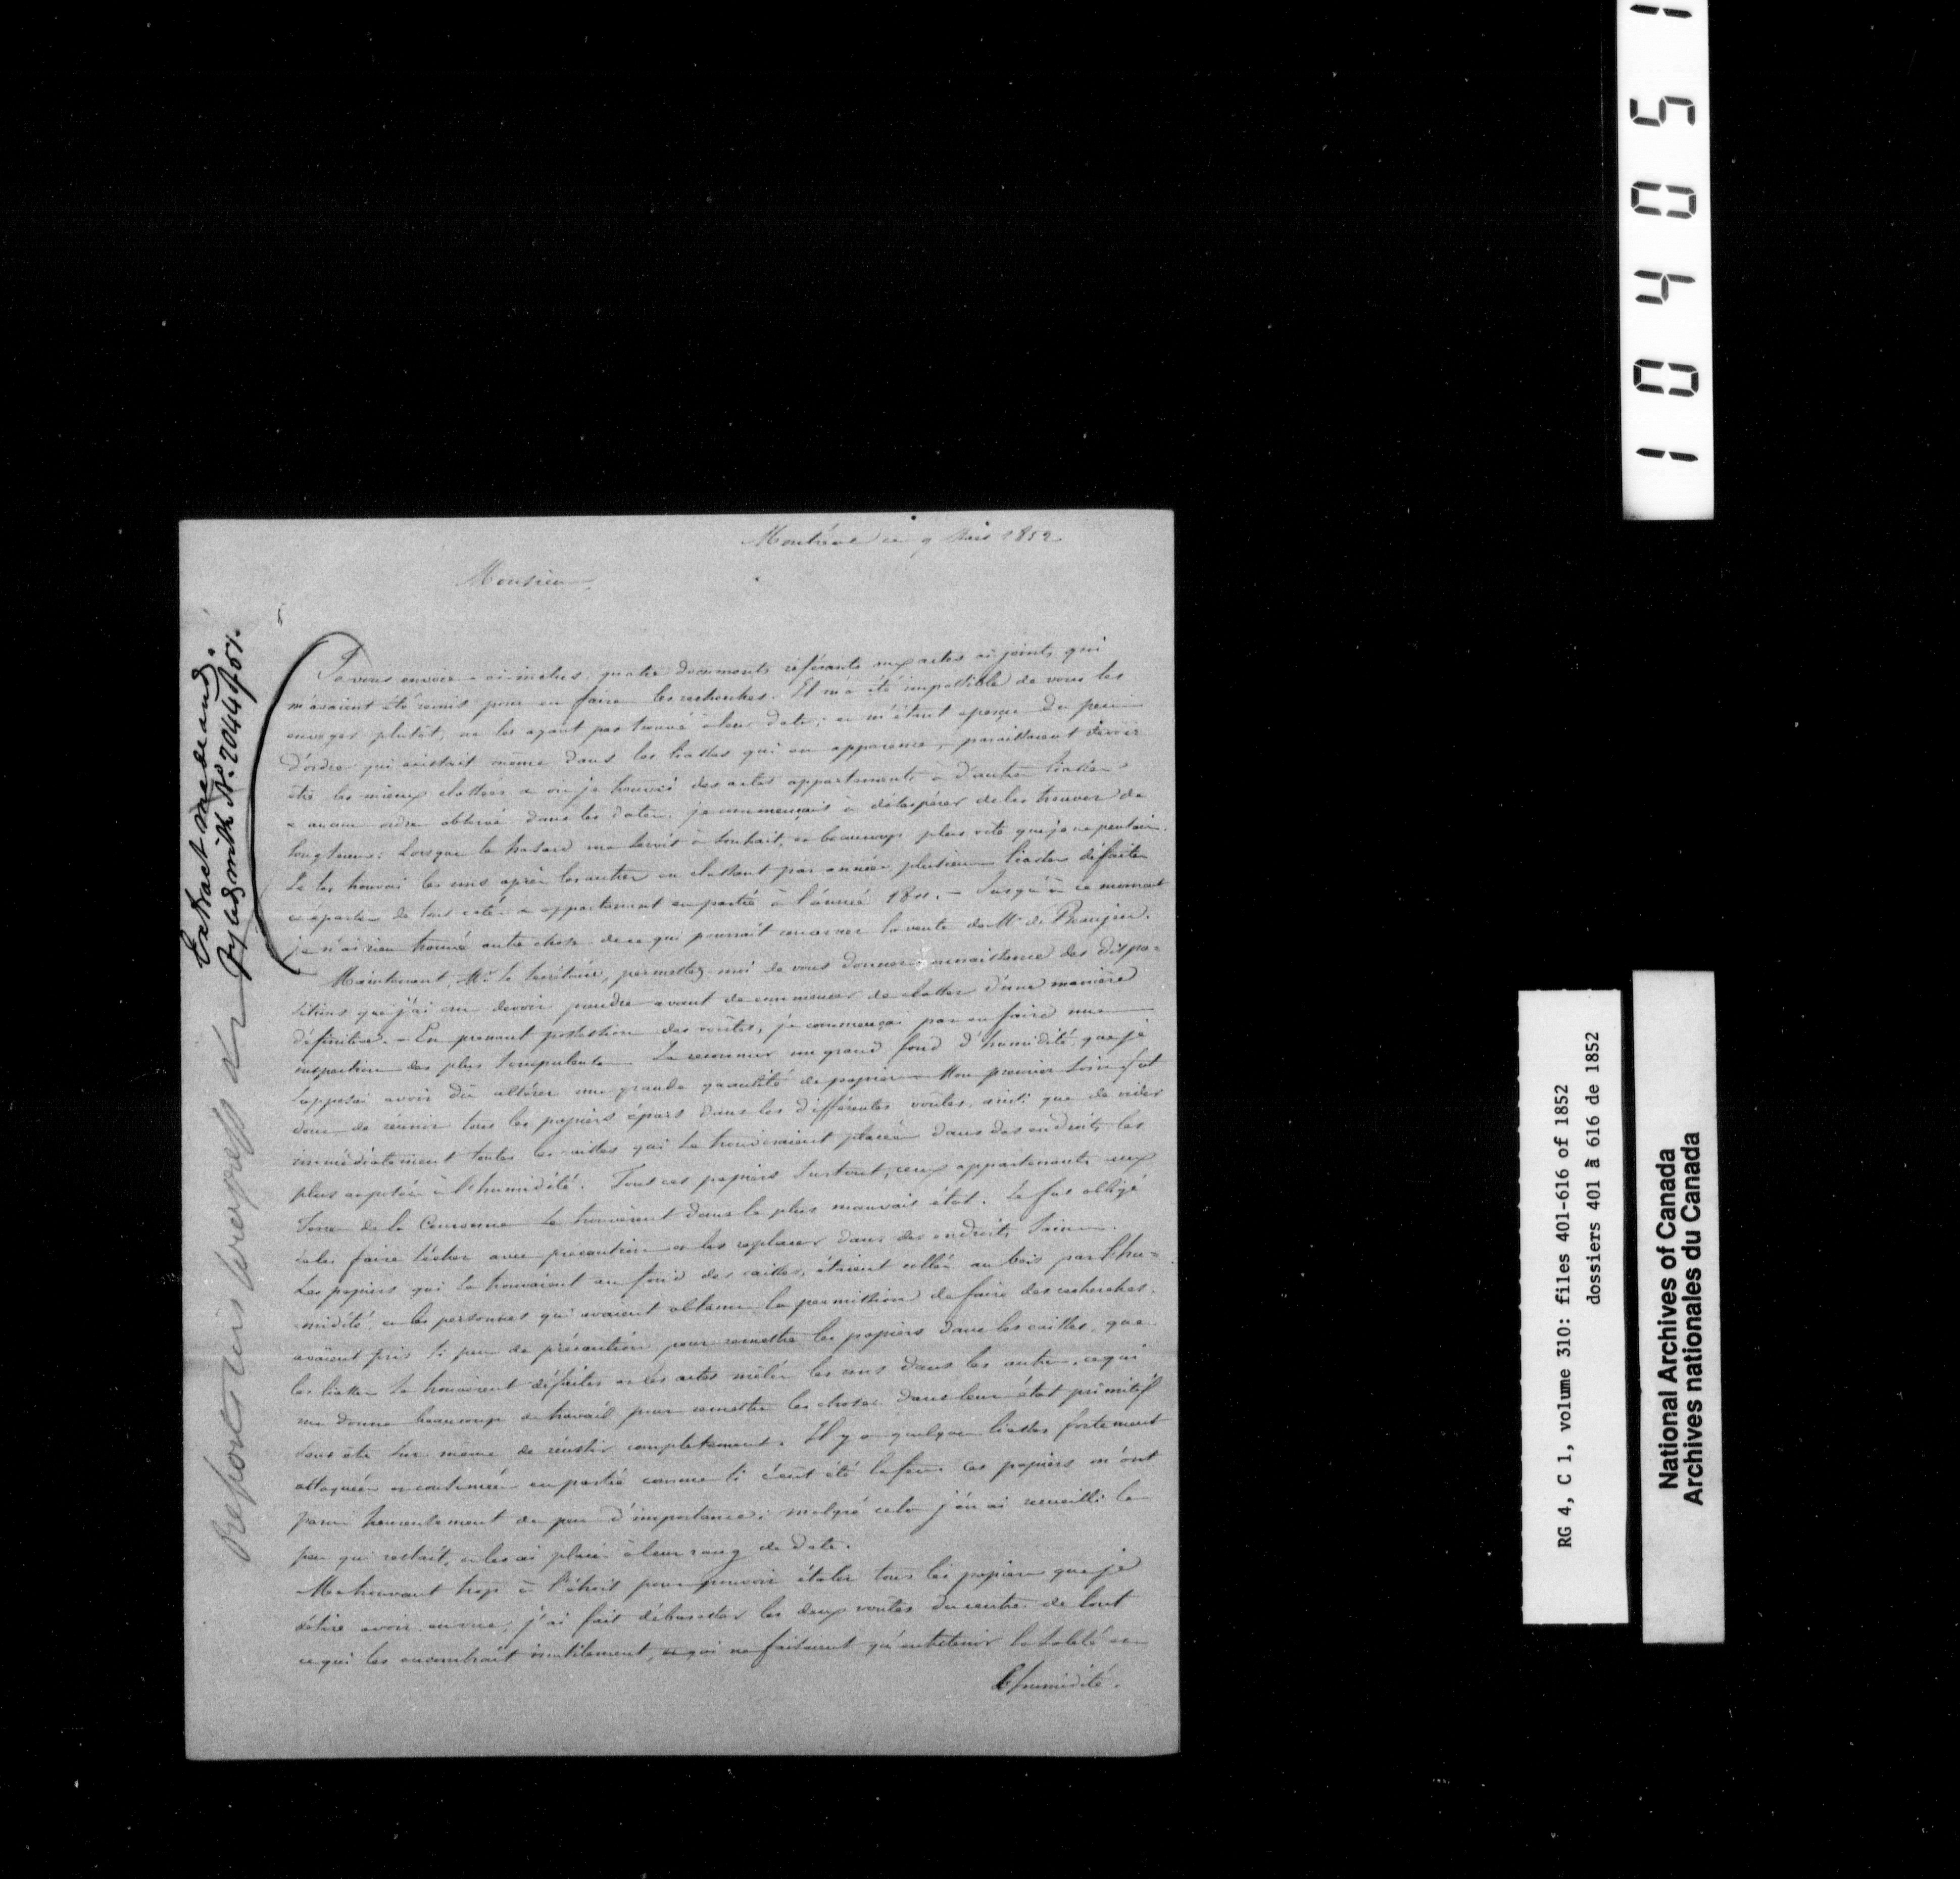 Montréal ce 9 Mars 1852
Monsieur,
Je vous envoie ci-inclus, quatre documents référants aux actes ci-joints, qui
m'avaient été remis pour en faire les recherches. Il m'a été impossible de vous les
envoyer plutôt, ne les ayant pas trouvé à leur date; et m'étant aperçu du peu
d'ordre qui existait même dans les liasses qui en apparence, paraissaient devoir
être les mieux classées & où je trouvai des actes appartenants à d'autres liasses
& aucun ordre observé dans les dates, je commençais à désespérer de les trouver de
longtems: Lorsque le hasard me servit à souhait, et beaucoup plus vite que je ne pensais.
Je les trouvai les uns après les autres en classant par année, plusieurs liasses défaites
éparses de tous côtés & appartenant en partie à l'année 18 — Jusqu'à ce moment
je n'ai rien trouvé autre chose de ce qui pourrait concerner la vente de Mr de Beaujeu.
Maintenant, Mr le Secrétaire, permettez moi de vous donner connaissance des dispo=
sitions que j'ai cru devoir prendre avant de commencer de classer d'une manière
définitive. — En prenant possession des voûtes, je commençai par en faire une
inspection des plus scrupuleuse. Je reconnus un grand fond d'humidité que je
supposai avoir dû altérer une grande quantité de papiers. Mon premier soin fut
donc de réunir tous les papiers épars dans les différentes voûtes, ainsi que de vider
immédiatement toutes les caisses qui se trouvaient placées dans des endroits les
plus exposés à l'humidité. Tous ces papiers surtout, ceux appartenants aux
Terres de la Couronne se trouvèrent dans le plus mauvais état. Je fus obligé
de les faire sécher avec précaution et les replacer dans des endroits sains.
Les papiers qui se trouvaient au fond des caisses, étaient collés au bois par l'hu=
midité, et les personnes qui avaient obtenu la permission de faire des recherches,
avaient pris si peu de précaution pour remettre les papiers dans les caisses, que
les liasses se trouvèrent défaites et les actes mêlés les uns dans les autres, ce qui
me donne beaucoup de travail pour remettre les choses dans leur état primitif
sans être sur même de réussir complètement. Il y a quelques liasses fortement
attaquées et consumées en partie comme si c'eut été le feu. Ces papiers m'ont
paru heureusement de peu d'importance; malgré cela j'en ai recueilli le
peu qui restait, et les ai placés à leur rang de date.
Me trouvant trop à l'étroit pour pouvoir étaler tous les papiers que je
désire avoir en vue, j'ai fait débarasser les deux voûtes du centre de tout
ce qui les encombrait inutilement, et qui ne faisaient qu'entretenir la saleté et
l'humidité.
Extract made and
filed with No. 2044 of 51.
Report on his progress &c
1 0 4 0 5 1
RG 4, C 1, volume 310: files 401-616 of 1852
dossiers 401 à 616 de 1852
National Archives of Canada
Archives nationales du Canada